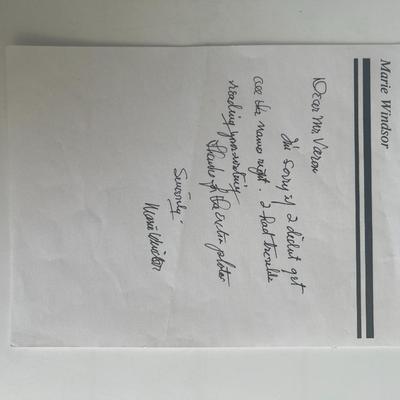 Marie Windsor
Dear Mr. Varon
I'm sorry if I didn't get
all the names right. I had trouble
reading your writing
Thanks for the extra photos
Sincerely
Marie Windsor